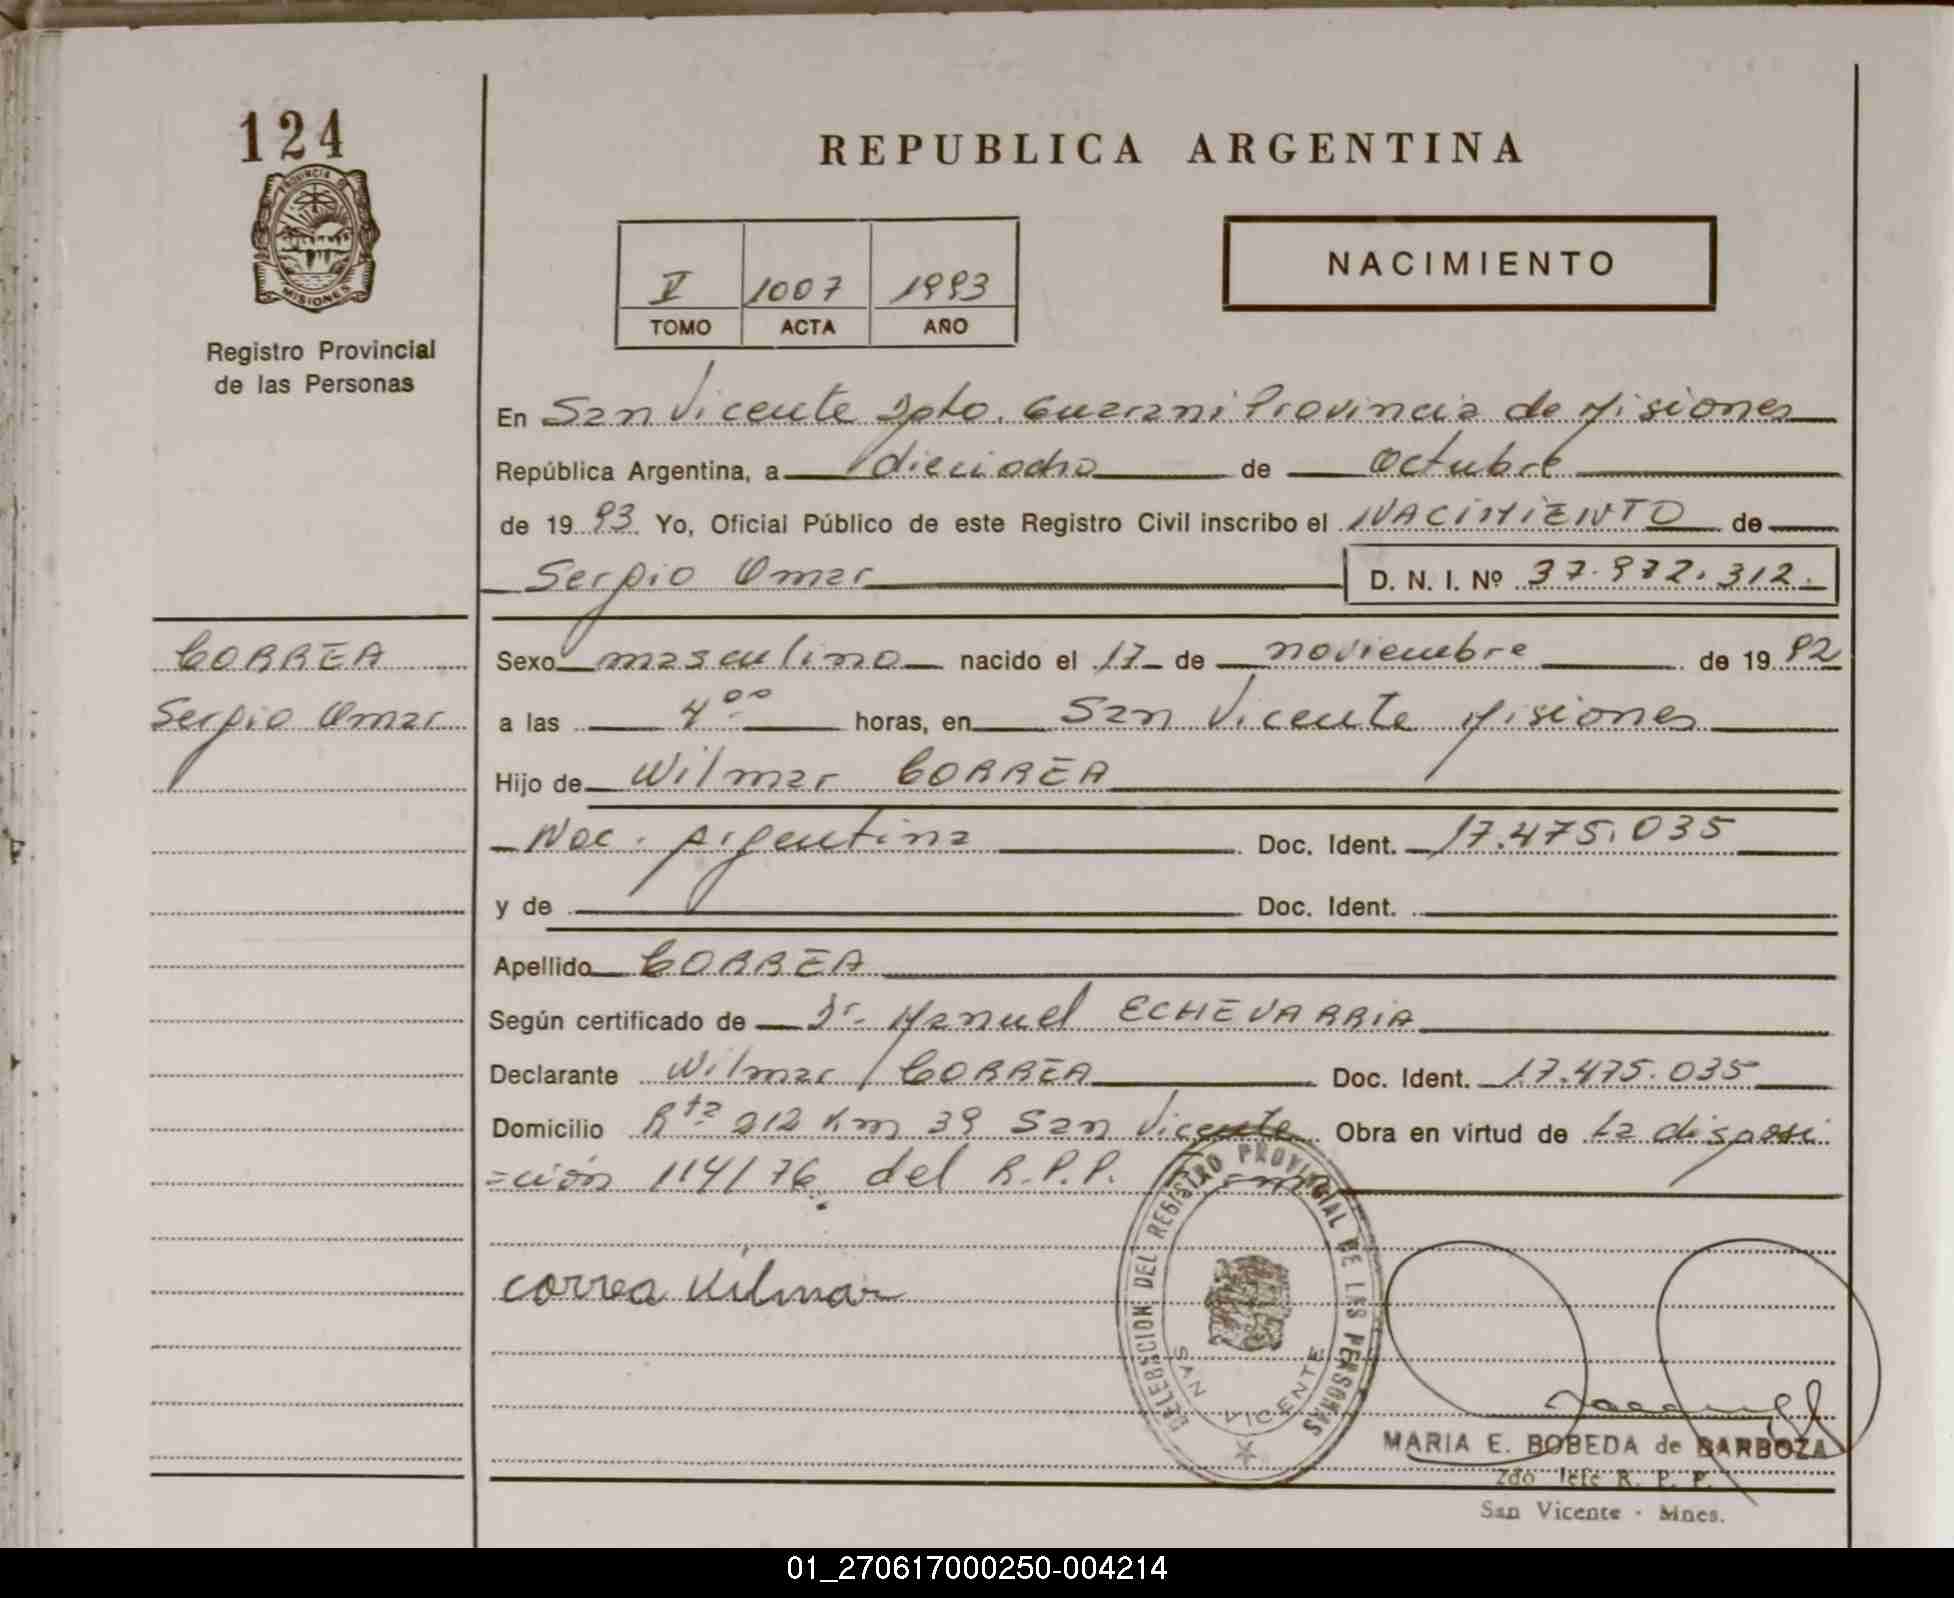 124
PROVINCIA DE
MISIONES
Registro Provincial
de las Personas
REPUBLICA ARGENTINA
V 1007 1993
TOMO ACTA AÑO
NACIMIENTO
En San Vicente Dpto. Guarani Provincia de Misiones
República Argentina, a dieciocho de Octubre
de 19 93 Yo, Oficial Público de este Registro Civil inscribo el NACIMIENTO de
Sergio Omar D. N. I. Nº 37.972.312.
CORREA
Sergio Omar
Sexo masculino nacido el 17 de noviembre de 19 92
a las 4°° horas, en San Vicente Misiones
Hijo de Wilmar CORREA
Nac. Argentina Doc. Ident. 17.475.035
y de Doc. Ident.
Apellido CORREA
Según certificado de Dr. Manuel ECHEVARRIA
Declarante Wilmar CORREA Doc. Ident. 17.475.035
Domicilio Rta 212 Km 39 San Vicente Obra en virtud de La disposi
=ción 114/76 del R.P.P.
correa Wilmar
DELEGACION DEL REGISTRO PROVINCIAL DE LAS PERSONAS
SAN VICENTE
MARIA E. BOBEDA de BARBOZA
2do Jefe R. P. P.
San Vicente - Mnes.
01_270617000250-004214